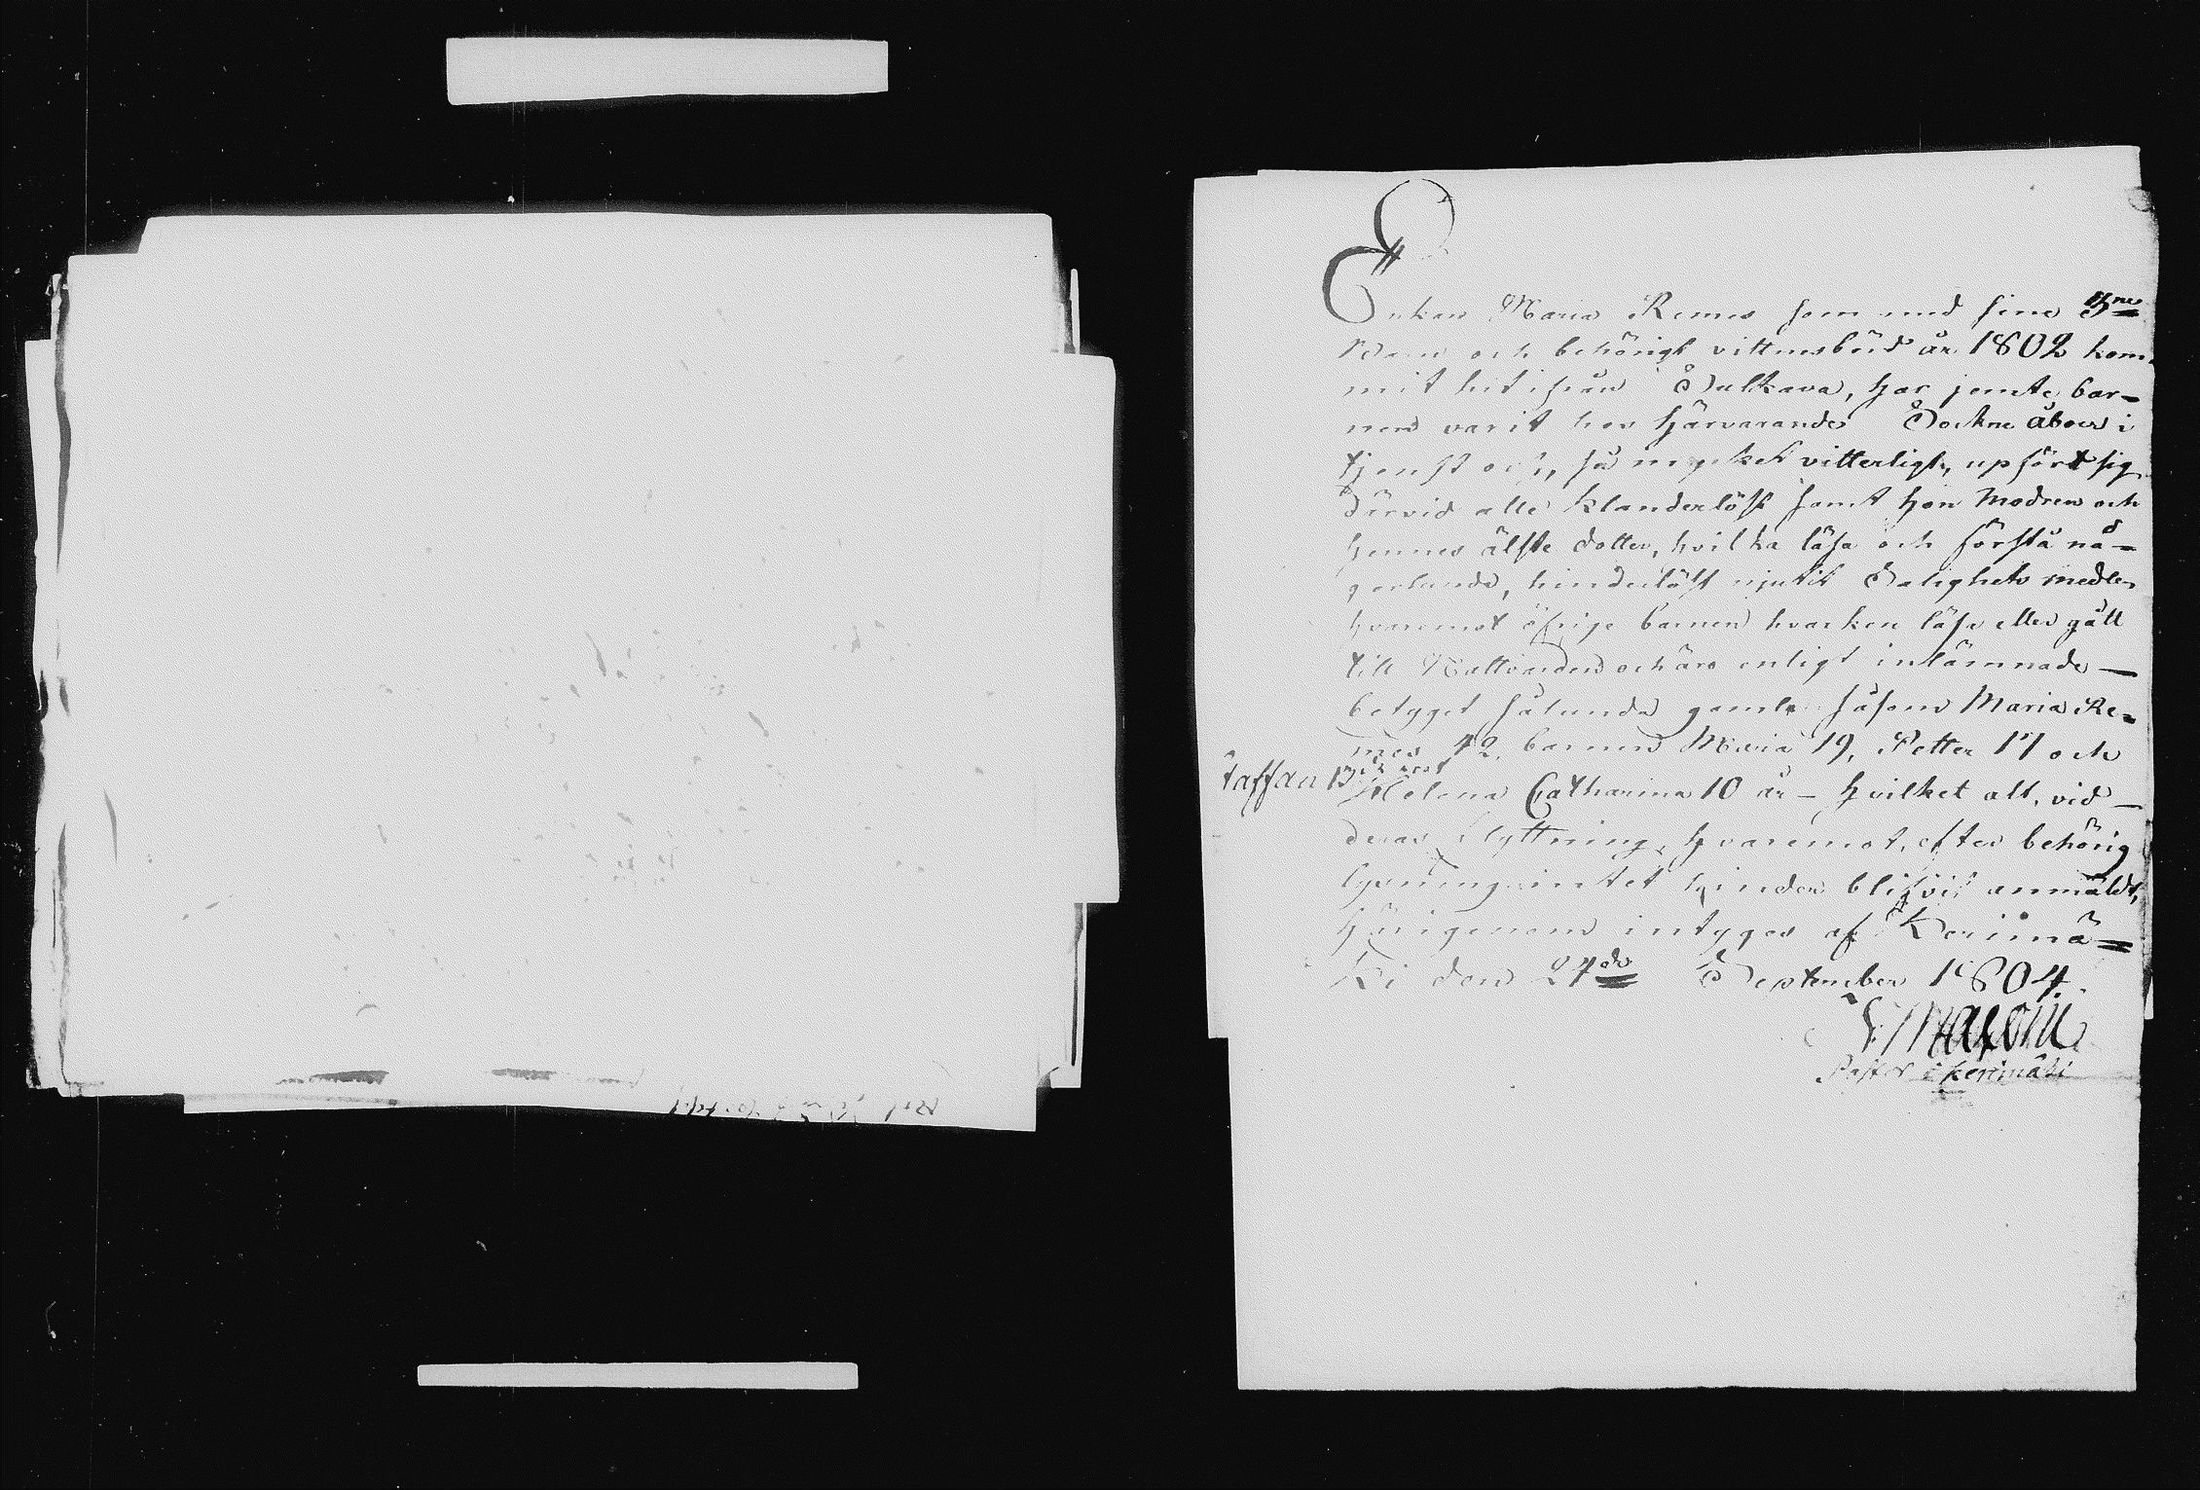 Enkan Maria Remes som med sine 3ne
Barn och behörigt vittnesbörd år 1802 kom-
mit hit ifrån Sulkava, har jemte bar-
nen varit hos härvarande Sockne åboer i
tjenst och, så mycket vitterligt, upfört sig
därvid alle klanderlöst samt hon modren och
hennes älste dotter, hvilka läsa och förstå nå-
gorlunda, hinderlöst njutit Salighets medlen
hvaremot öfrige barnen hvarken läsa eller gått
till Nattvarden och äro enligt inlämnade
betyget sålunda gamle såsom Maria Re-
mes 42, barnen Maria 19, Petter 17 och
taffan 13
Helena Catharina 10 år - hvilket alt, vid
deras flyttning, hvaremot, efter behörig
lysning intet hinder blifvit anmäldt,
härigenom intygas af Kerimä-
ki den 24de September 1804.
Pastor i Kerimäki